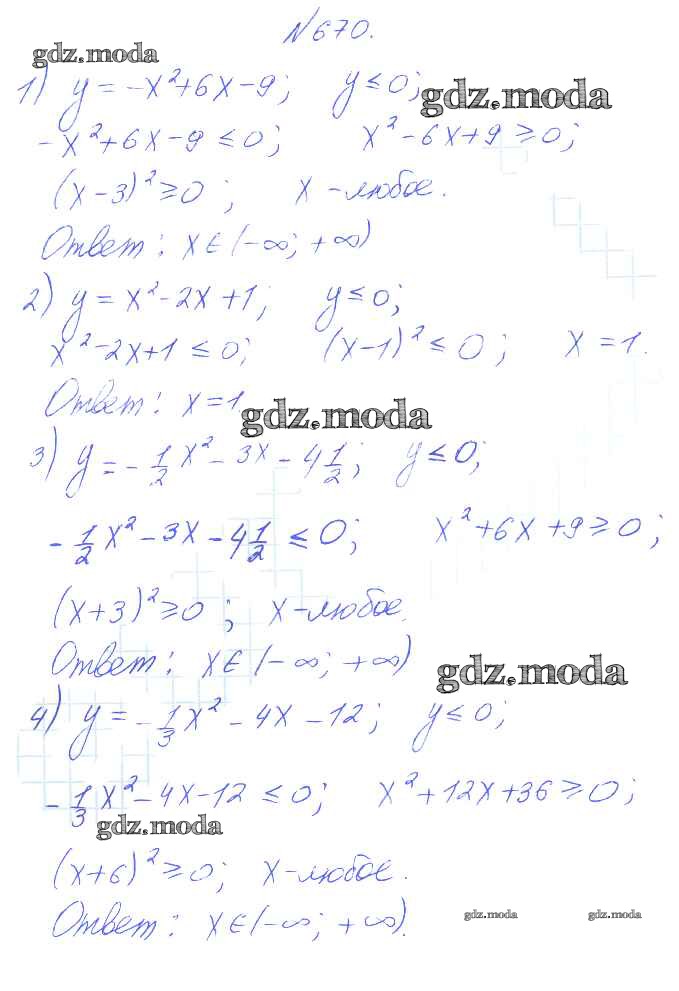 №670.
gdz.moda
1) y = -x²+6x-9; y ≤ 0;
gdz.moda
-x²+6x-9 ≤ 0; x²-6x+9 ≥ 0;
(x-3)² ≥ 0; x - любое.
Ответ: x∈(-∞; +∞)
2) y = x²-2x+1; y ≤ 0;
x²-2x+1 ≤ 0; (x-1)² ≤ 0; x = 1.
Ответ: x=1.
gdz.moda
3) y = -1/2x²-3x-4 1/2; y ≤ 0;
-1/2x²-3x-4 1/2 ≤ 0; x²+6x+9 ≥ 0;
(x+3)² ≥ 0; x-любое.
Ответ: x∈(-∞; +∞)
gdz.moda
4) y = -1/3x²-4x-12; y ≤ 0;
-1/3x²-4x-12 ≤ 0; x²+12x+36 ≥ 0;
gdz.moda
(x+6)² ≥ 0; x-любое.
Ответ: x∈(-∞; +∞).
gdz.moda gdz.moda